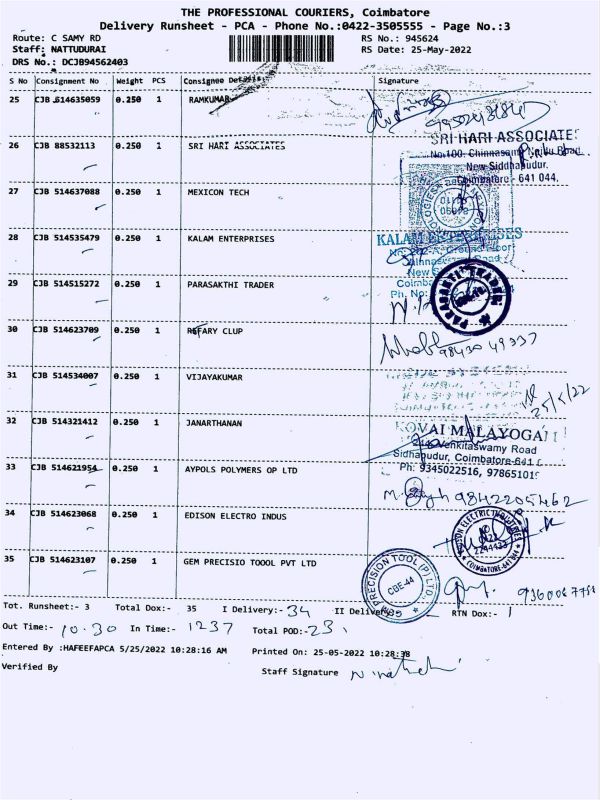 THE PROFESSIONAL COURIERS, Coimbatore
Delivery Runsheet - PCA - Phone No.:0422-3505555 - Page No.:3
Route: C SAMY RD RS No.: 945624
Staff: NATTUDURAI RS Date: 25-May-2022
DRS No.: DCJB94562403
S No Consignment No Weight PCS Consignee Details Signature
25 CJB 514635059 0.250 1 RAMKUMAR
26 CJB 88532113 0.250 1 SRI HARI ASSOCIATES
SRI HARI ASSOCIATES
No:100, Chinnasamy Naidu Road
New Siddhapudur.
Coimbatore - 641 044.
27 CJB 514637088 0.250 1 MEXICON TECH
28 CJB 514535479 0.250 1 KALAM ENTERPRISES
KALAM ENTERPRISES
29 CJB 514515272 0.250 1 PARASAKTHI TRADER
PARASAKTHI TRADER
30 CJB 514623709 0.250 1 ROTARY CLUP
9843049337
31 CJB 514534007 0.250 1 VIJAYAKUMAR
25/5/22
32 CJB 514321412 0.250 1 JANARTHANAN
KOVAI MALAYOGAM
Venkitaswamy Road
Sidhapudur, Coimbatore-641
Ph: 9345022516, 97865101
33 CJB 514621954 0.250 1 AYPOLS POLYMERS OP LTD
9842205462
34 CJB 514623068 0.250 1 EDISON ELECTRO INDUS
EDISON ELECTRIC INDUSTRIES
2244433
COIMBATORE-641 044
35 CJB 514623107 0.250 1 GEM PRECISIO TOOOL PVT LTD
PRECISION TOOL (P) LTD.
CBE-44
Tot. Runsheet:- 3 Total Dox:- 35 I Delivery:- 34 II Delivery RTN Dox:- 1
Out Time:- 10.30 In Time:- 1237 Total POD:- 23
Entered By :HAFEEFAPCA 5/25/2022 10:28:16 AM Printed On: 25-05-2022 10:28:38
Verified By Staff Signature